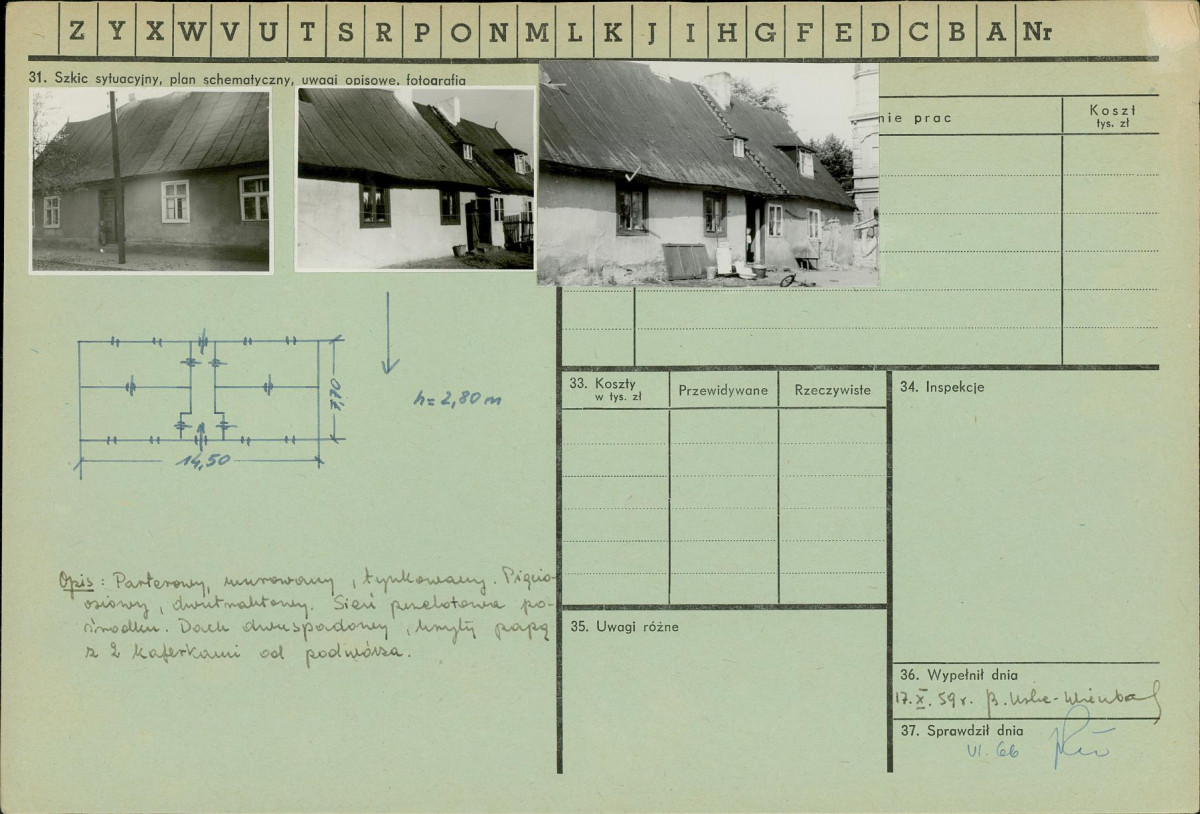 Z Y X W V U T S R P O N M L K J I H G F E D C B A Nr
31. Szkic sytuacyjny, plan schematyczny, uwagi opisowe, fotografia
nie prac
Koszt
tys. zł
7,70
h = 2,80 m
14,50
33. Koszty
w tys. zł
Przewidywane
Rzeczywiste
34. Inspekcje
Opis: Parterowy, murowany, tynkowany. Pięcio-
osiowy, dwutraktowy. Sień przelotowa po-
środku. Dach dwuspadowy, kryty papą
z 2 kaferkami od podwórza.
35. Uwagi różne
36. Wypełnił dnia
17.X.59 r. B.
37. Sprawdził dnia
VI. 66